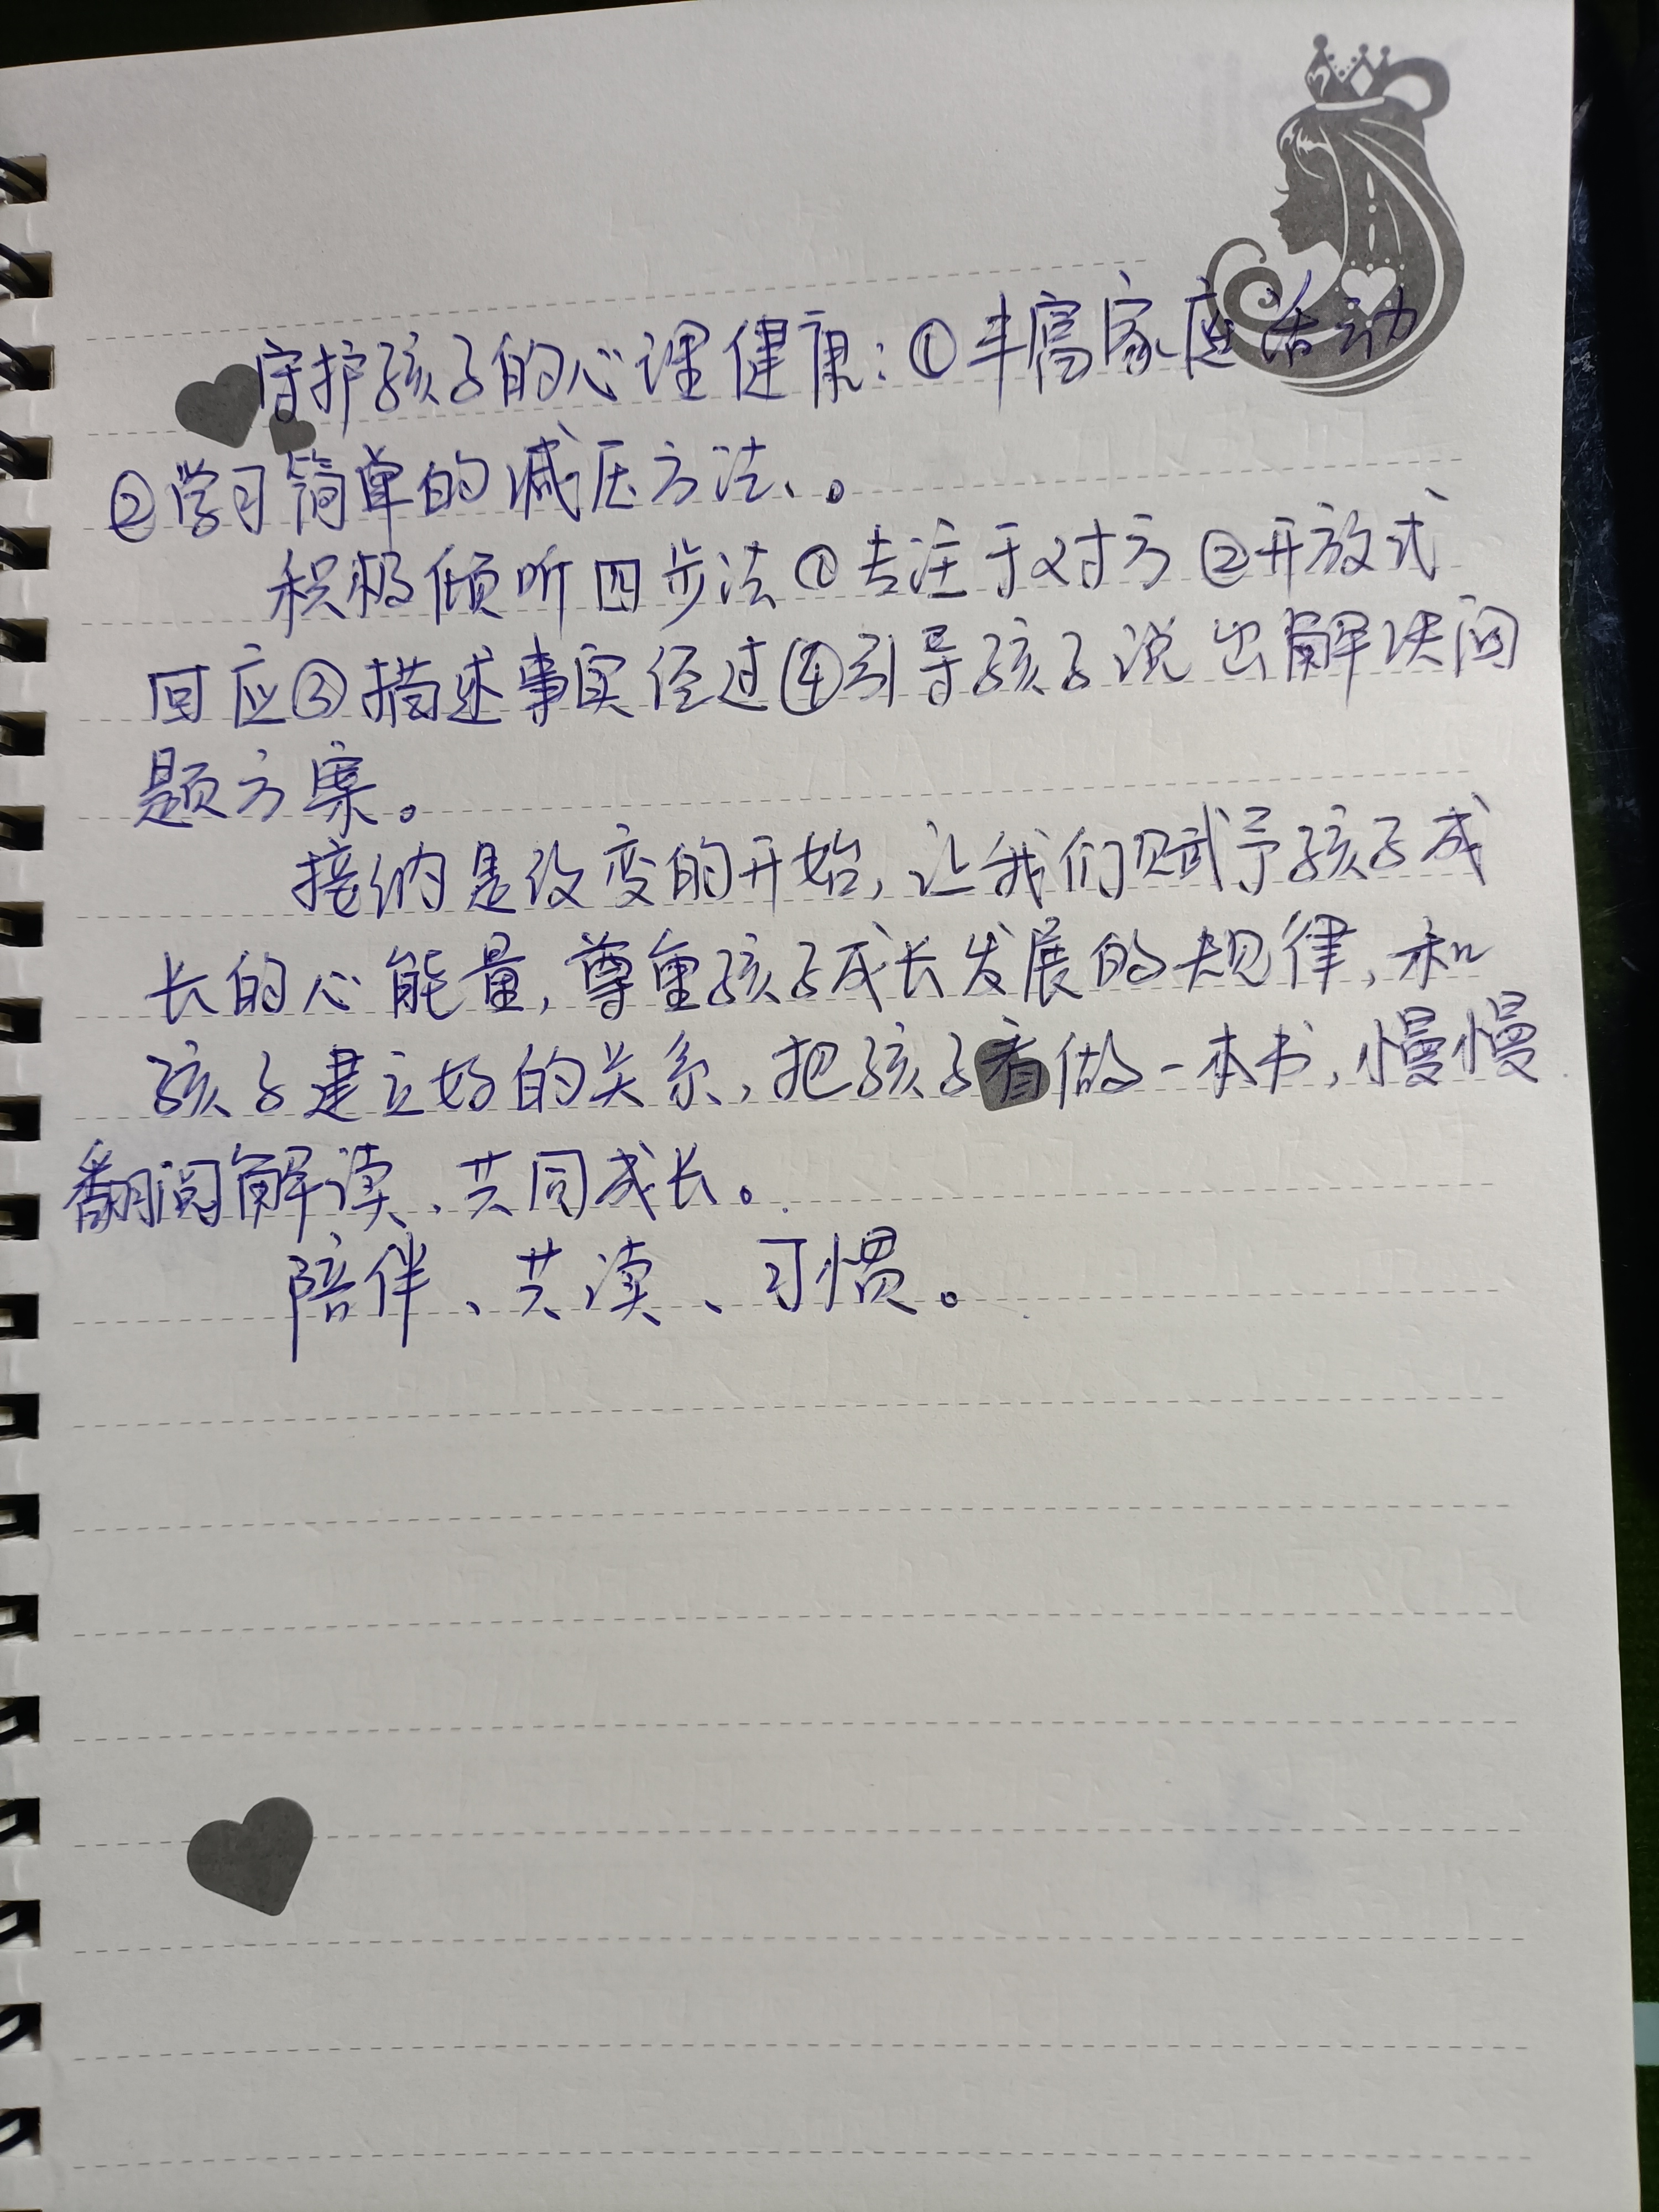 守护孩子的心理健康：①丰富家庭活动
②学习简单的减压方法、。
积极倾听四步法①专注于对方②开放式
回应③描述事实经过④引导孩子说出解决问
题方案。
接纳是改变的开始，让我们赋予孩子成
长的心能量，尊重孩子成长发展的规律，和
孩子建立好的关系，把孩子看做一本书，慢慢
翻阅解读、共同成长。
陪伴、共读、习惯。